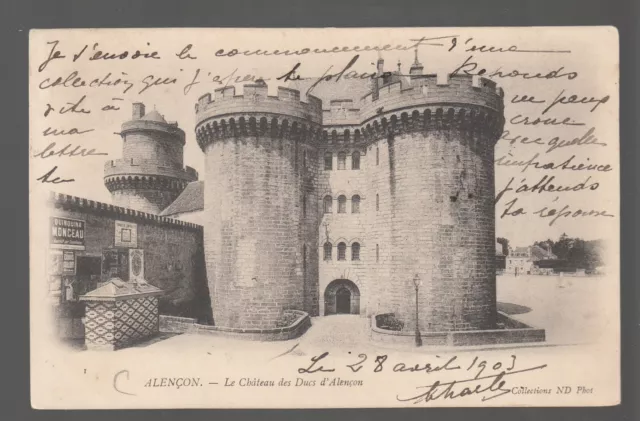 Je t'envoie le commencement d'une
collection qui j'espère te plaira. Reponds
vite à
ma
lettre
tu
un peux
croire
avec quelle
impatience
j'attends
ta réponse
QUINQUINA
MONCEAU
Le 28 avril 1903
Charles
1 ALENÇON. — Le Château des Ducs d'Alençon
Collections ND Phot